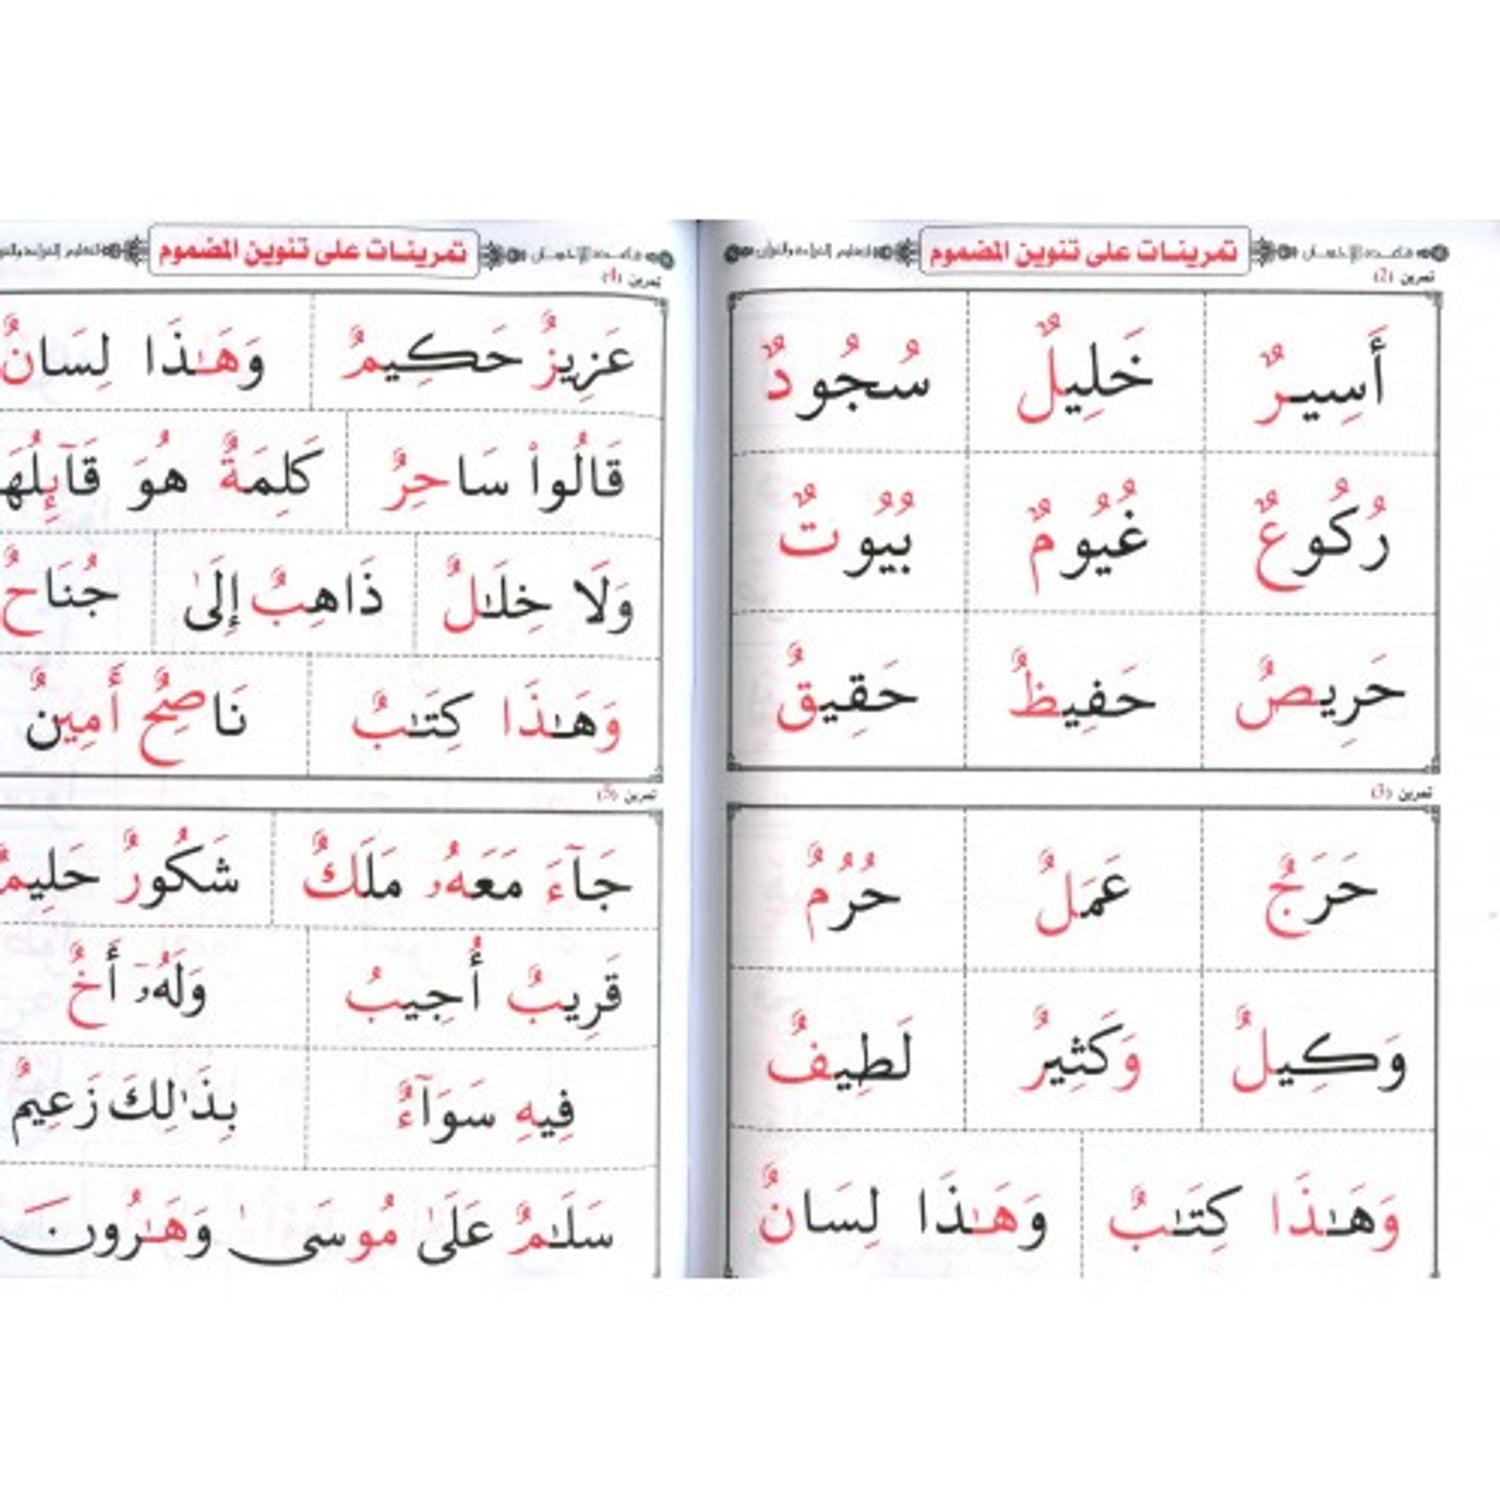 قاعدة الإحسان تمرينات على تنوين المضموم لتعليم القراءة والقرآن
تمرين (2)
أَسِيرٌ خَلِيلٌ سُجُودٌ
رُكُوعٌ غُيُومٌ بُيُوتٌ
حَرِيصٌ حَفِيظٌ حَقِيقٌ
تمرين (3)
حَرَجٌ عَمَلٌ حُرُمٌ
وَكِيلٌ وَكَثِيرٌ لَطِيفٌ
وَهَـٰذَا كِتَـٰبٌ وَهَـٰذَا لِسَانٌ
قاعدة الإحسان تمرينات على تنوين المضموم لتعليم القراءة
تمرين (4)
عَزِيزٌ حَكِيمٌ وَهَـٰذَا لِسَانٌ
قَالُواْ سَاحِرٌ كَلِمَةٌ هُوَ قَآئِلُهَا
وَلَا خِلَـٰلٌ ذَاهِبٌ إِلَىٰ جُنَاحٌ
وَهَـٰذَا كِتَـٰبٌ نَاصِحٌ أَمِينٌ
تمرين (5)
جَآءَ مَعَهُۥ مَلَكٌ شَكُورٌ حَلِيمٌ
قَرِيبٌ أُجِيبُ وَلَهُۥٓ أَخٌ
فِيهِ سَوَآءٌ بِذَٰلِكَ زَعِيمٌ
سَلَـٰمٌ عَلَىٰ مُوسَىٰ وَهَـٰرُونَ